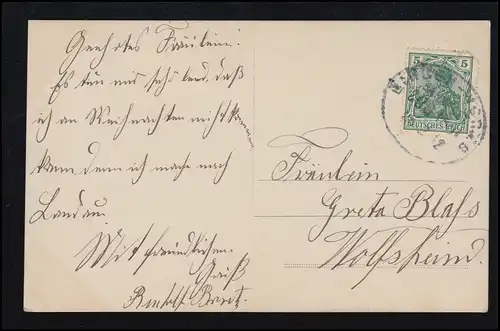 Geehrtes Fräulein!
Es tun mir schö leid, daß
ich an Weihnachten nicht
kam, denn ich mache nach
Landau.
Mit freundlichen
Gruß
Rudolf
5 5
DEUTSCHES REICH
Fräulein
Greta Blaß
Wolfsheim.